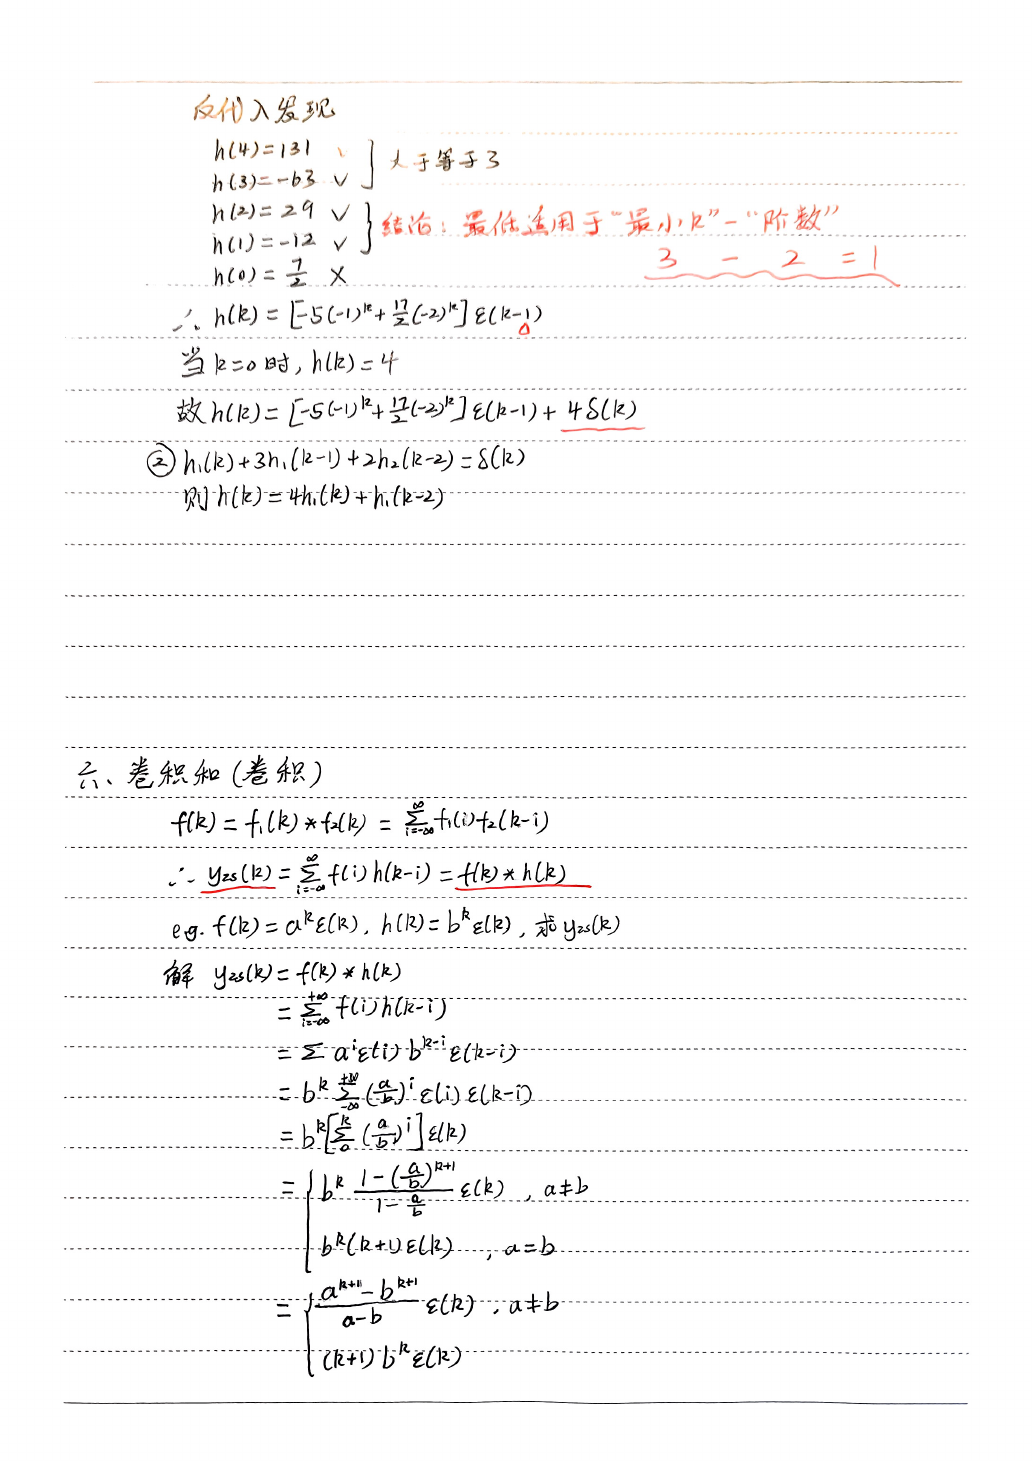 反代入发现
h(4)=131 ✓
h(3)=-63 ✓ ] 大于等于3
h(2)=29 ✓
h(1)=-12 ✓ } 结论：最低适用于“最小k”-“阶数”
h(0)=7/2 × 3 - 2 = 1
∴ h(k)=[-5(-1)^k+17/2(-2)^k]ε(k-1)
当k=0时, h(k)=4
故h(k)=[-5(-1)^k+17/2(-2)^k]ε(k-1)+4δ(k)
② h₁(k)+3h₁(k-1)+2h₂(k-2)=δ(k)
则h(k)=4h₁(k)+h₁(k-2)
六、卷积和(卷积)
f(k)=f₁(k)*f₂(k)=∑_{i=-∞}^{∞}f₁(i)f₂(k-i)
∴ y_zs(k)=∑_{i=-∞}^{∞}f(i)h(k-i)=f(k)*h(k)
eg. f(k)=a^kε(k), h(k)=b^kε(k), 求y_zs(k)
解 y_zs(k)=f(k)*h(k)
=∑_{i=-∞}^{+∞}f(i)h(k-i)
=∑a^iε(i)b^{k-i}ε(k-i)
=b^k∑_{-∞}^{+∞}(a/b)^iε(i)ε(k-i)
=b^k[∑_{0}^{k}(a/b)^i]ε(k)
={ b^k (1-(a/b)^{k+1})/(1-a/b) ε(k), a≠b
b^k(k+1)ε(k), a=b
={ (a^{k+1}-b^{k+1})/(a-b) ε(k), a≠b
(k+1)b^kε(k)